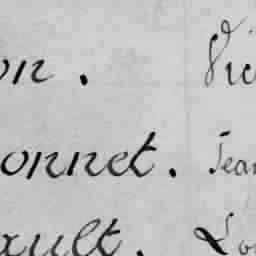 on. Vic
onnet. Jean
ault. Lo